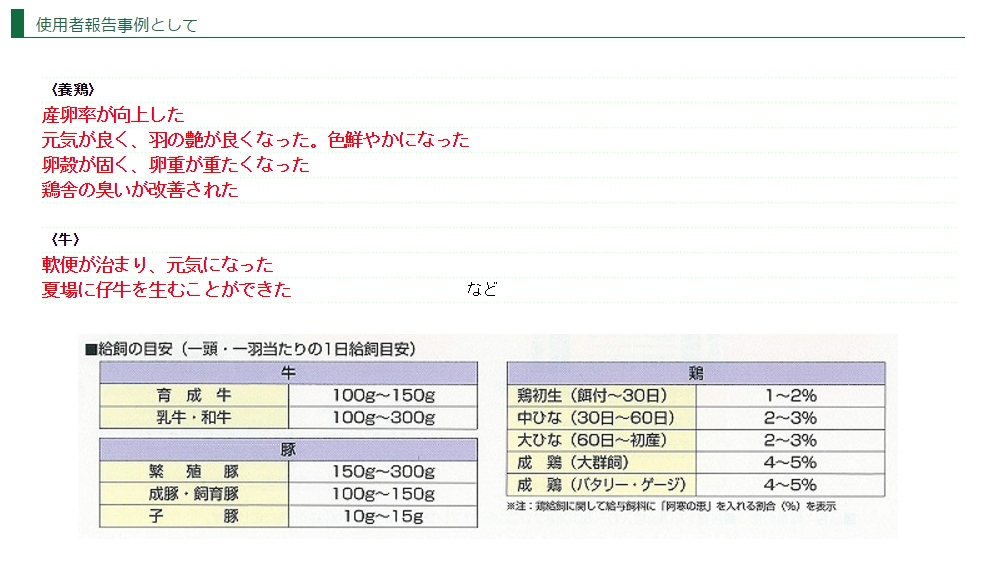 使用者報告事例として
〈養鶏〉
産卵率が向上した
元気が良く、羽の艶が良くなった。色鮮やかになった
卵殻が固く、卵重が重たくなった
鶏舎の臭いが改善された
〈牛〉
軟便が治まり、元気になった
夏場に仔牛を生むことができた など
■給飼の目安（一頭・一羽当たりの1日給飼目安）
牛
育成牛 100g～150g
乳牛・和牛 100g～300g
豚
繁殖豚 150g～300g
成豚・飼育豚 100g～150g
子豚 10g～15g
鶏
鶏初生（餌付～30日） 1～2%
中ひな（30日～60日） 2～3%
大ひな（60日～初産） 2～3%
成鶏（大群飼） 4～5%
成鶏（バタリー・ゲージ） 4～5%
※注：鶏給飼に関して給与飼料に「阿寒の恵」を入れる割合（%）を表示